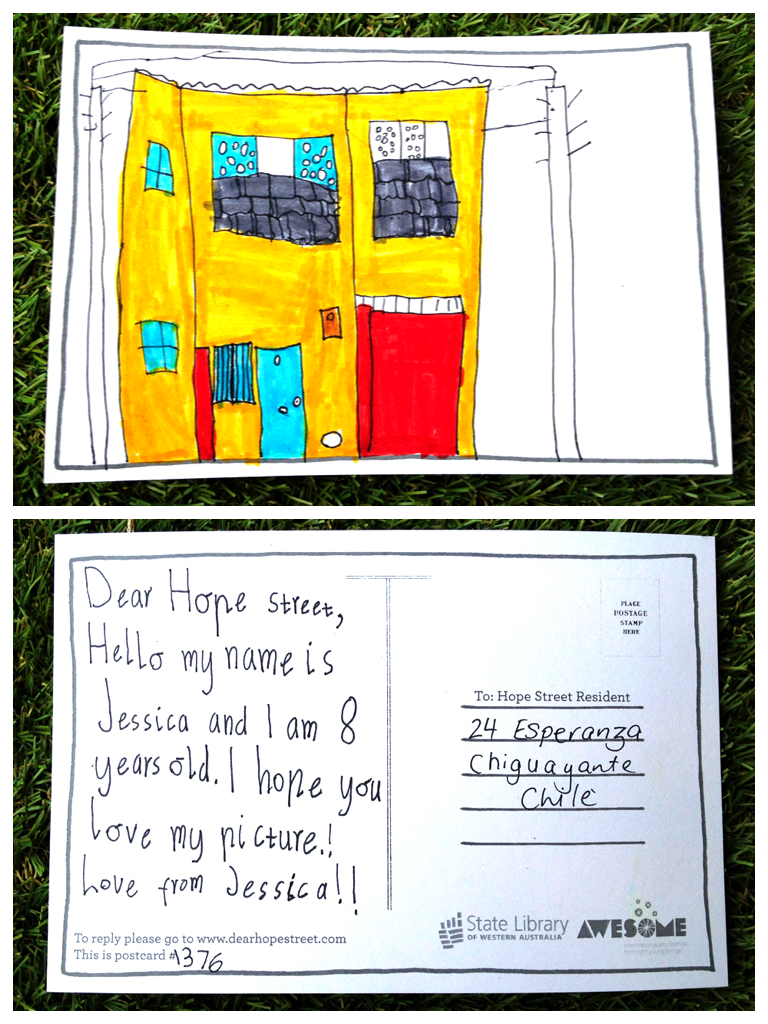 Dear Hope street,
Hello my name is
Jessica and I am 8
years old. I hope you
love my picture.!
Love from Jessica!!
To reply please go to www.dearhopestreet.com
This is postcard #1376
PLACE
POSTAGE
STAMP
HERE
To: Hope Street Resident
24 Esperanza
Chiguayante
Chile
State Library
OF WESTERN AUSTRALIA
AWESOME